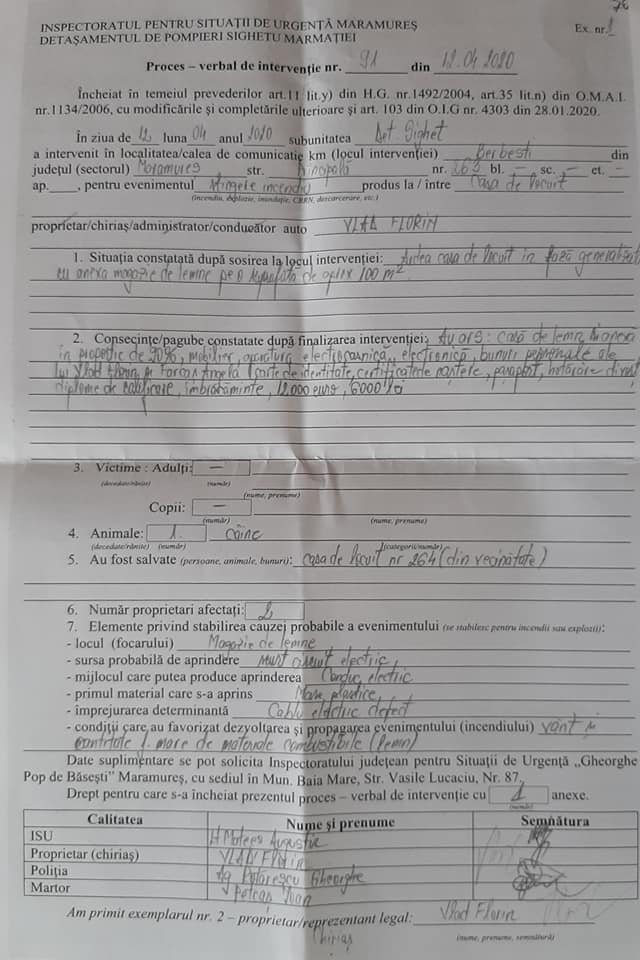 INSPECTORATUL PENTRU SITUAȚII DE URGENȚĂ MARAMUREȘ
DETAȘAMENTUL DE POMPIERI SIGHETU MARMAȚIEI
Ex. nr.
Proces – verbal de intervenție nr. 91 din 12.04.2020
Încheiat în temeiul prevederilor art.11 lit.y) din H.G. nr.1492/2004, art.35 lit.n) din O.M.A.I.
nr.1134/2006, cu modificările și completările ulterioare și art. 103 din O.I.G nr. 4303 din 28.01.2020.
În ziua de 12 luna 04 anul 2020 subunitatea Det. Sighet
a intervenit în localitatea/calea de comunicație km (locul intervenției) Berbesti din
județul (sectorul) Maramureș str. Principală nr. 263 bl. – sc. – et. –
ap. , pentru evenimentul Stingere incendiu produs la / între Casa de locuit
(incendiu, explozie, inundație, CBRN, descarcerare, etc.)
proprietar/chiriaș/administrator/conducător auto VLAD FLORIN
1. Situația constatată după sosirea la locul intervenției: Ardea casa de locuit in fază generalizată
cu anexa magazie de lemne pe o suprafata de aprox 100 m²
2. Consecințe/pagube constatate după finalizarea intervenției: Au ars: casă de lemn, anexa
in proportie de 90%, mobilier, aparatură electrocasnică, electronică, bunuri personale ale
lui Vlad Florin și Farcas Angela (carte de identitate, certificate de naștere, pasaport, hotărâre divorț
diplome de calificare, îmbrăcăminte, 12.000 euro, 6000
3. Victime : Adulți: –
(decedate/rănite) (număr)
(nume, prenume)
Copii: –
(număr) (nume, prenume)
4. Animale: 1. câine
(decedate/rănite) (număr) (categorii/număr)
5. Au fost salvate (persoane, animale, bunuri): casa de locuit nr 264 (din vecinătate)
6. Număr proprietari afectați: 2
7. Elemente privind stabilirea cauzei probabile a evenimentului (se stabilesc pentru incendii sau explozii):
- locul (focarului) Magazie de lemne
- sursa probabilă de aprindere scurt circuit electric
- mijlocul care putea produce aprinderea Conduc. electric
- primul material care s-a aprins Mase plastice
- împrejurarea determinantă Cablu electric defect
- condiții care au favorizat dezvoltarea și propagarea evenimentului (incendiului) vânt și
cantitate f. mare de materiale combustibile (lemn)
Date suplimentare se pot solicita Inspectoratului județean pentru Situații de Urgență „Gheorghe
Pop de Băsești” Maramureș, cu sediul în Mun. Baia Mare, Str. Vasile Lucaciu, Nr. 87.
Drept pentru care s-a încheiat prezentul proces – verbal de intervenție cu 1 anexe.
(număr)
Calitatea Nume și prenume Semnătura
ISU Augustin
Proprietar (chiriaș) VLAD FLORIN
Poliția Ag Gheorghe
Martor Petcas Ioan
Am primit exemplarul nr. 2 – proprietar/reprezentant legal: Vlad Florin
Chiriaș
(nume, prenume, semnătură)